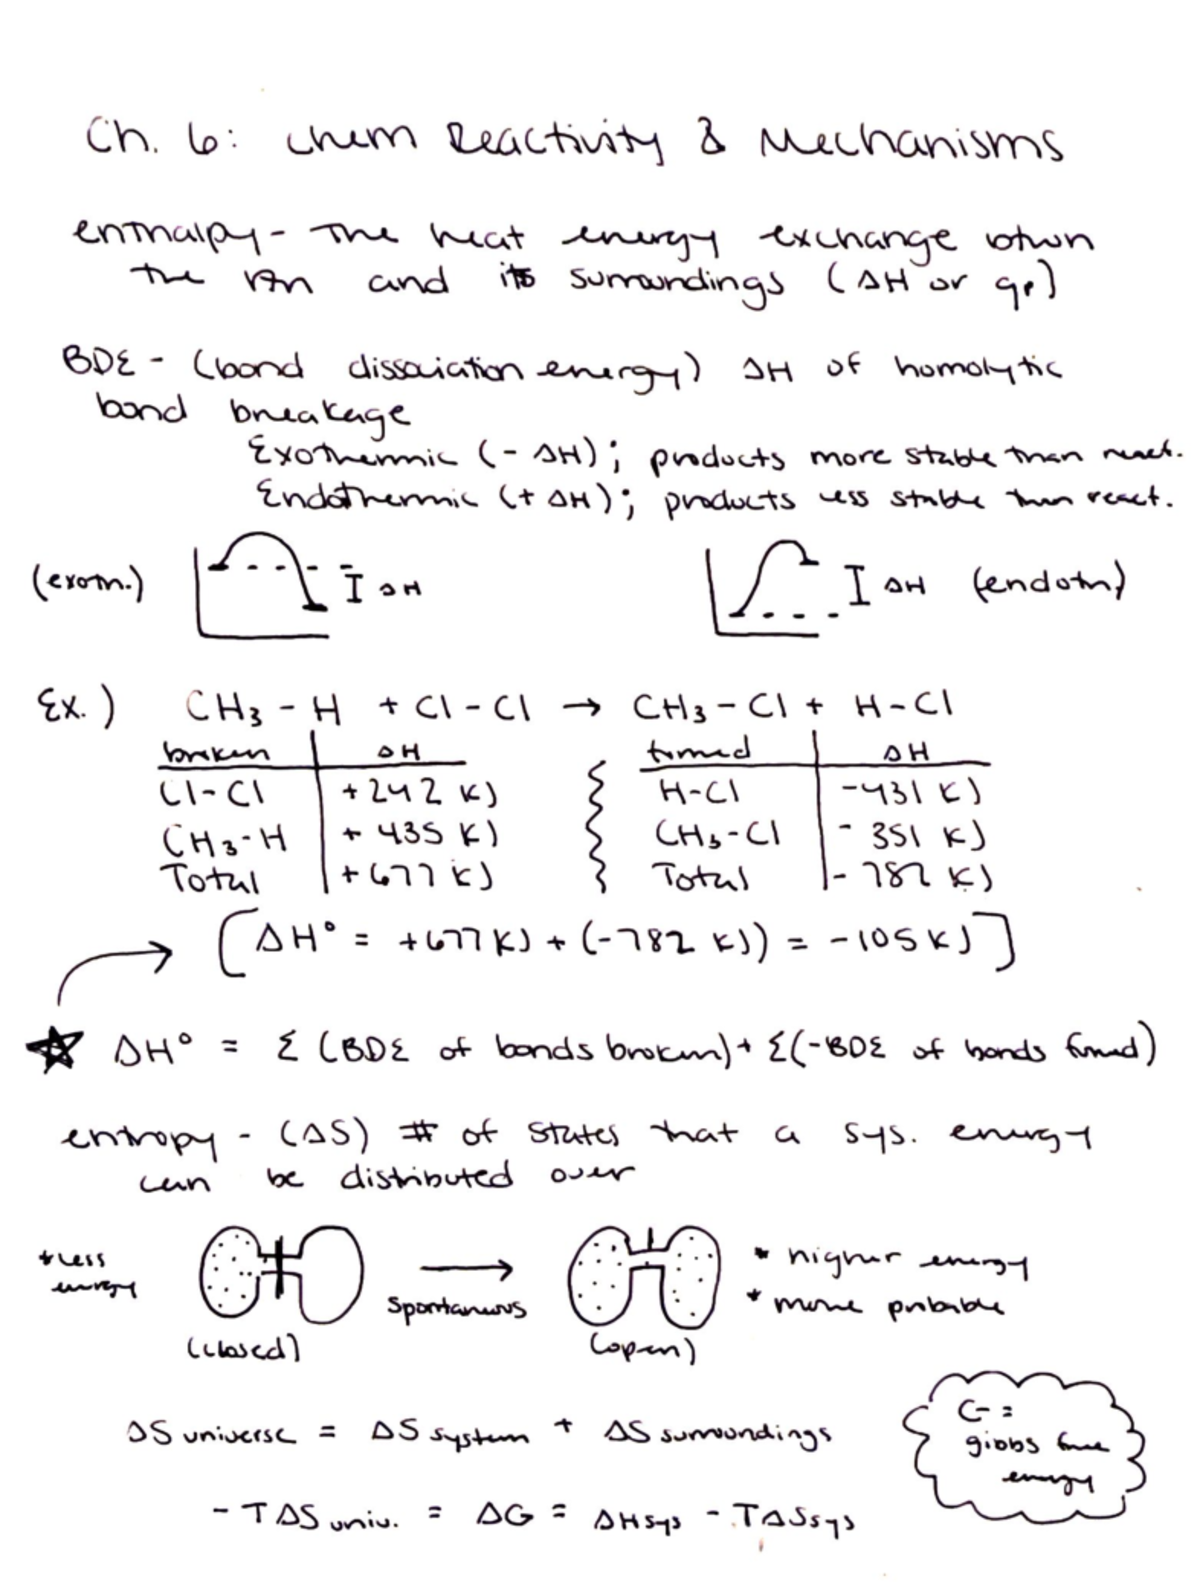 Ch. 6: Chem Reactivity & Mechanisms
enthalpy - The heat energy exchange btwn
the rxn and its surroundings (ΔH or qp)
BDE - (bond dissociation energy) ΔH of homolytic
bond breakage
Exothermic (- ΔH); products more stable than react.
Endothermic (+ ΔH); products less stable than react.
(exoth.) ΔH ΔH (endoth)
Ex.) CH₃ - H + Cl - Cl → CH₃ - Cl + H - Cl
broken ΔH formed ΔH
Cl-Cl +242 KJ H-Cl -431 KJ
CH₃-H + 435 KJ CH₃-Cl - 351 KJ
Total +677 KJ Total - 782 KJ
[ΔH° = +677 KJ + (-782 KJ) = -105 KJ]
★ ΔH° = Σ (BDE of bonds broken) + Σ(-BDE of bonds formed)
entropy - (ΔS) # of states that a sys. energy
can be distributed over
*less energy
(closed)
spontaneous
(open)
* higher energy
* more probable
ΔS universe = ΔS system + ΔS surroundings
G = gibbs free energy
- TΔS univ. = ΔG = ΔHsys - TΔSsys